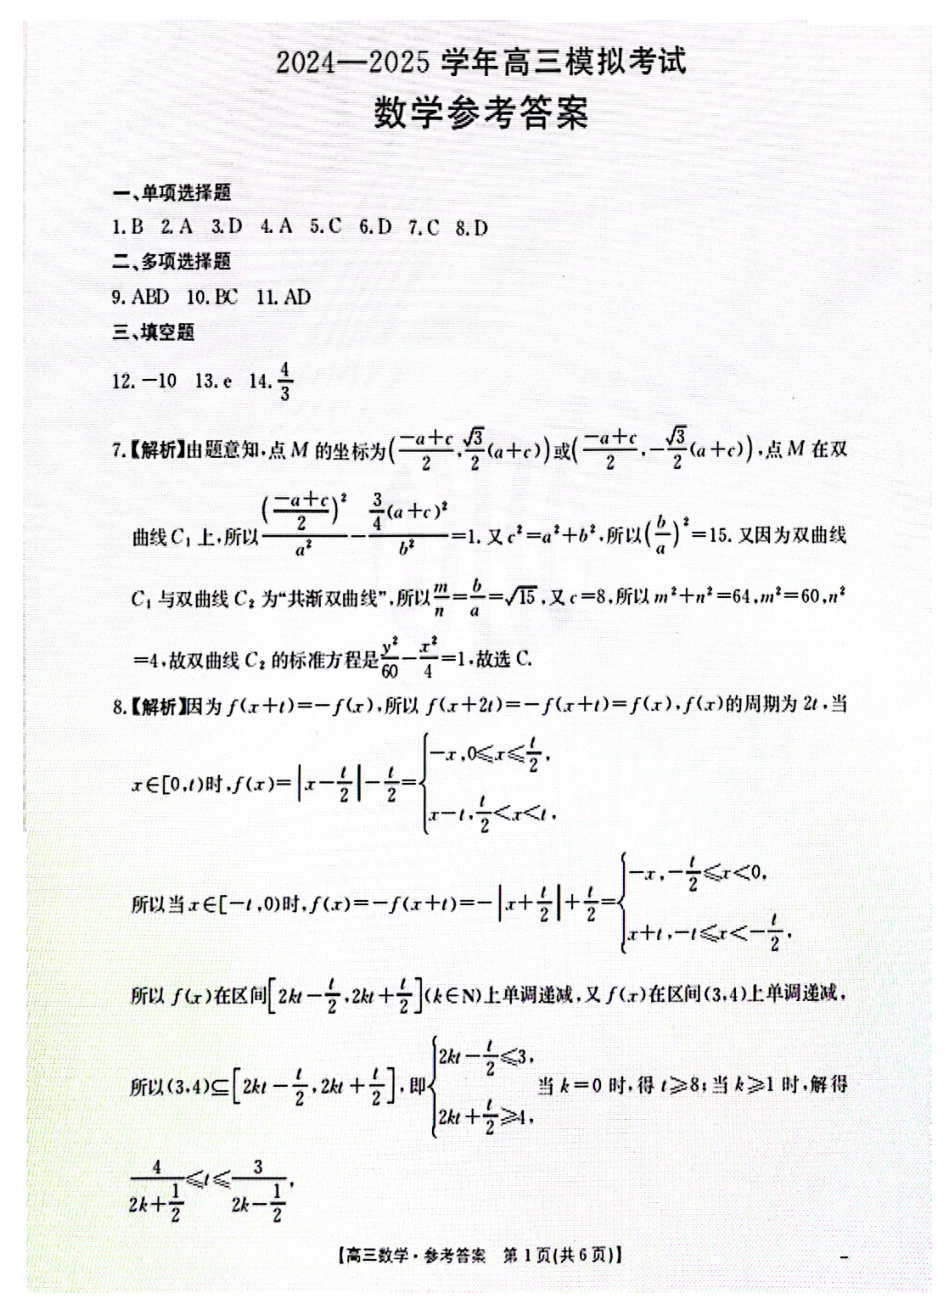 2024—2025 学年高三模拟考试
数学参考答案
一、单项选择题
1. B 2. A 3. D 4. A 5. C 6. D 7. C 8. D
二、多项选择题
9. ABD 10. BC 11. AD
三、填空题
12. －10 13. e 14. 4/3
7.【解析】由题意知,点 M 的坐标为((－a＋c)/2, (√3/2)(a＋c))或((－a＋c)/2, －(√3/2)(a＋c)),点 M 在双
曲线 C₁ 上,所以 ((－a＋c)/2)²/a² － (3/4)(a＋c)²/b² ＝1. 又 c²＝a²＋b²,所以(b/a)²＝15. 又因为双曲线
C₁ 与双曲线 C₂ 为“共渐双曲线”,所以 m/n＝b/a＝√15,又 c＝8,所以 m²＋n²＝64,m²＝60,n²
＝4,故双曲线 C₂ 的标准方程是 y²/60－x²/4＝1,故选 C.
8.【解析】因为 f(x＋t)＝－f(x),所以 f(x＋2t)＝－f(x＋t)＝f(x),f(x)的周期为 2t,当
x∈[0,t)时,f(x)＝|x－t/2|－t/2＝{－x,0≤x≤t/2, x－t,t/2<x<t,
所以当 x∈[－t,0)时,f(x)＝－f(x＋t)＝－|x＋t/2|＋t/2＝{－x,－t/2≤x<0, x＋t,－t≤x<－t/2,
所以 f(x)在区间[2kt－t/2,2kt＋t/2](k∈N)上单调递减,又 f(x)在区间(3,4)上单调递减,
所以(3,4)⊆[2kt－t/2,2kt＋t/2],即{2kt－t/2≤3, 2kt＋t/2≥4, 当 k＝0 时,得 t≥8;当 k≥1 时,解得
4/(2k＋1/2)≤t≤3/(2k－1/2),
【高三数学·参考答案 第 1 页(共 6 页)】